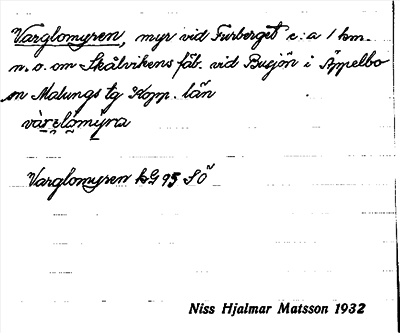 Varglomyren, myr vid Furberget c:a 1 km.
n.o. om Skålvikens fäb. vid Busjön i Äppelbo
sn Malungs tg Kopp. län
Varglomyren kG 95 SÖ
Niss Hjalmar Matsson 1932